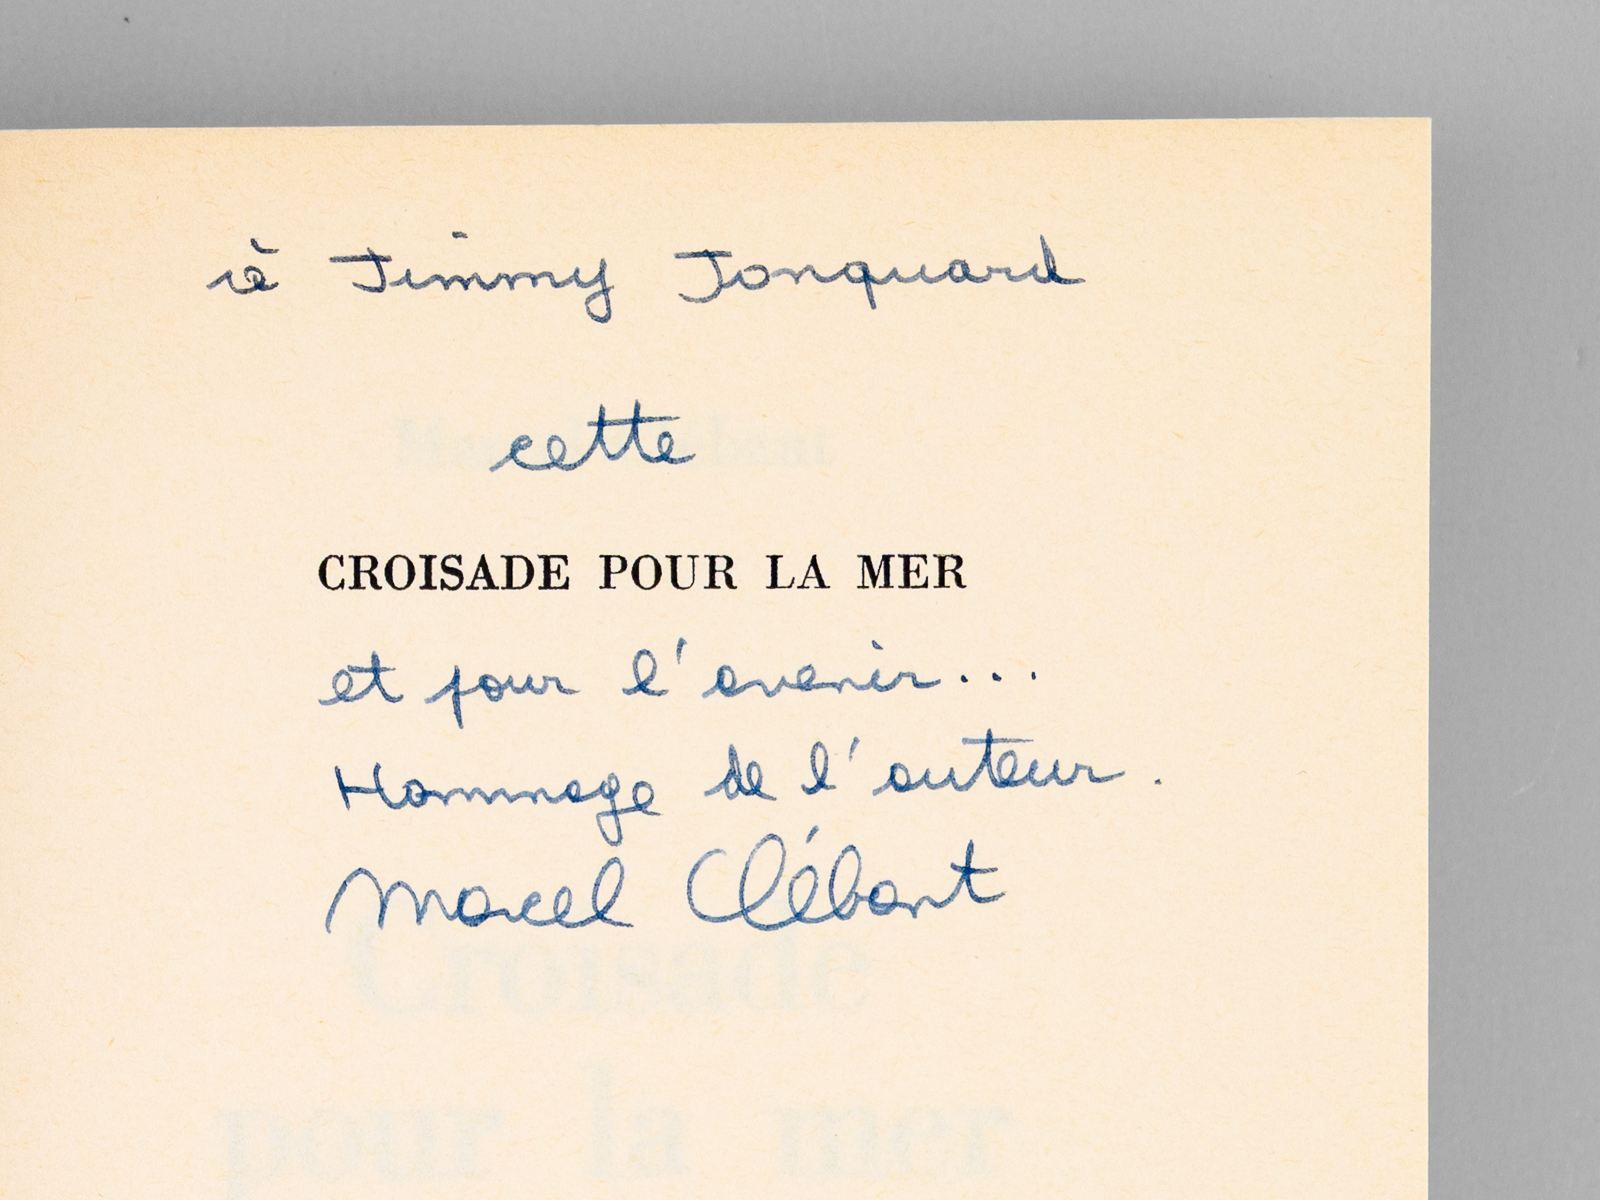 à Jimmy Jonquard
cette
CROISADE POUR LA MER
et pour l'avenir...
Hommage de l'auteur.
Marcel Clébant
Croisade
pour la mer